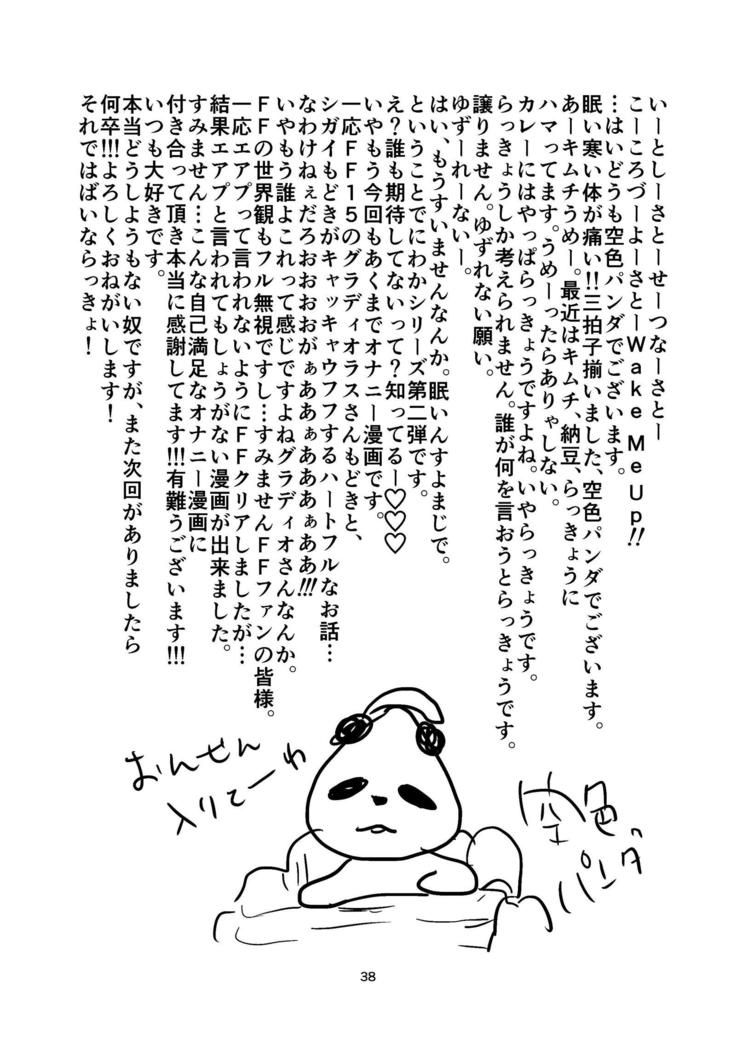 いーとしーさとーせーつなーさとー
こーころづーよーさとーWake Me Up!!
…はいどうも空色パンダでございます。
眠い寒い体が痛い!!三拍子揃いました、空色パンダでございます。
あーキムチうめー。最近はキムチ、納豆、らっきょうに
ハマってます。うめーったらありゃしない。
カレーにはやっぱらっきょうですよね。いやらっきょうです。
らっきょうしか考えられません。誰が何を言おうとらっきょうです。
譲りません。ゆずれない願い。
ゆずーれーないー。
はい、もうすいませんなんか。眠いんすよまじで。
ということでにわかシリーズ第二弾です。
え?誰も期待してないって?知ってるー♡♡♡
いやもう今回もあくまでオナニー漫画です。
一応FF15のグラディオラスさんもどきと、
シガイもどきがキャッキャウフフするハートフルなお話…
なわけねぇだろおおおおがぁああぁあああぁああ!!!
いやもう誰よこれって感じですよねグラディオさんなんか。
FFの世界観もフル無視ですし…すみませんFFファンの皆様。
一応エアプって言われないようにFFクリアしましたが…
結果エアプと言われてもしょうがない漫画が出来ました。
すみません…こんな自己満足なオナニー漫画に
付き合って頂き本当に感謝してます!!!有難うございます!!!
いつも大好きです。
本当どうしようもない奴ですが、また次回がありましたら
何卒!!!よろしくおねがいします!
それではばいならっきょ!
おんせん
入りてーわ
空色
パンダ
38